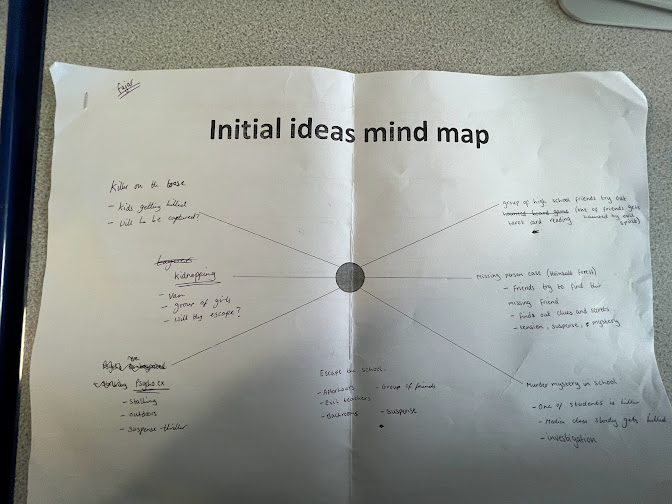 Fajar
Initial ideas mind map
Killer on the loose
- Kids getting killed
- Will he be captured?
group of high school friends try out
haunted board game (one of friends gets
tarot card reading haunted by evil
spirit)
kidnapping
- van
- group of girls
- Will they escape?
Missing person case (Hainault forest)
- Friends try to find their
missing friend
- Finds out clues and secrets
- tension, suspense, & mystery
Psycho ex
- Stalking
- outdoors
- suspense thriller
Escape the school.
- Afterhours - Group of friends
- Evil teachers
- Backrooms - Suspense
Murder mystery in school
- One of students is killer
- Media class slowly gets killed
- investigation